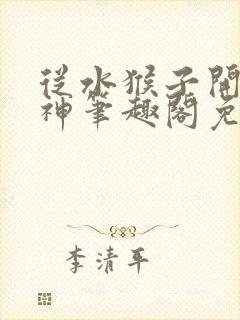 從水猴子開
神筆趣閣免
李清平